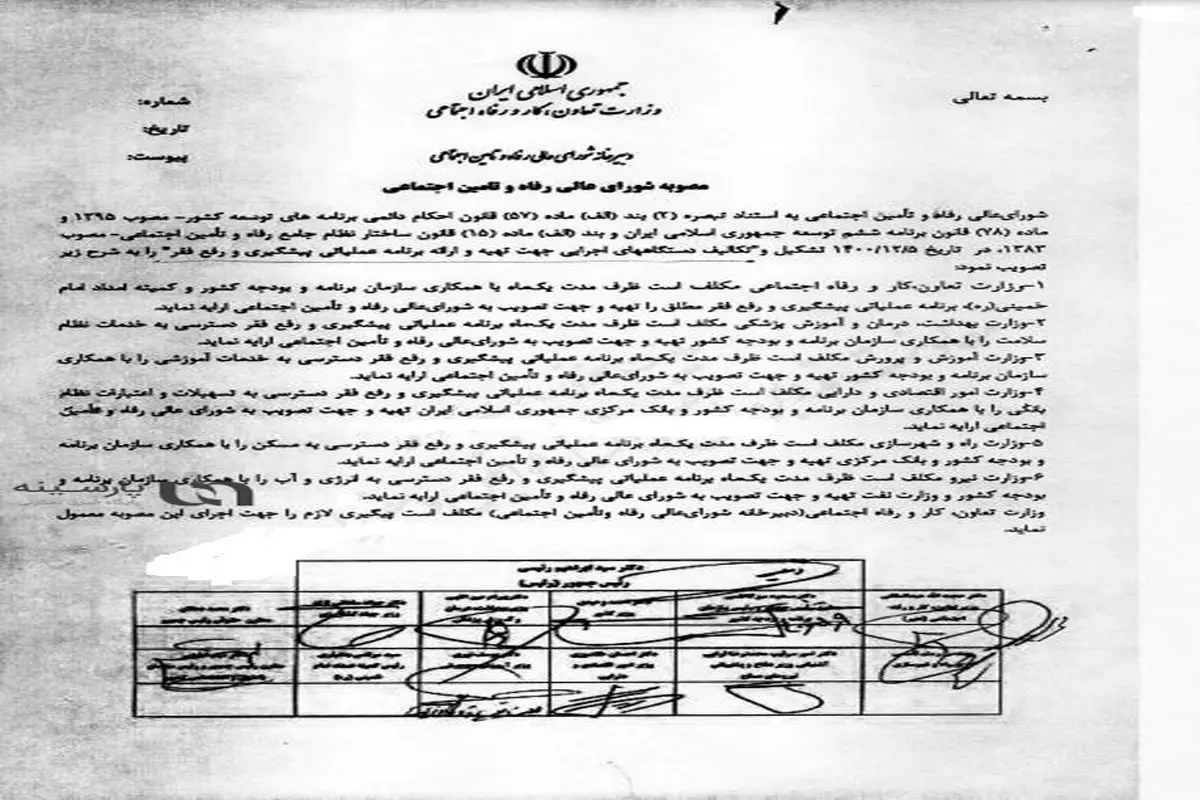 بسمه تعالی
جمهوری اسلامی ایران
وزارت تعاون، کار و رفاه اجتماعی
شماره:
تاریخ:
پیوست:
دبیرخانه شورای عالی رفاه و تامین اجتماعی
مصوبه شورای عالی رفاه و تامین اجتماعی
شورای‌عالی رفاه و تأمین اجتماعی به استناد تبصره (۲) بند (الف) ماده (۵۷) قانون احکام دائمی برنامه های توسعه کشور- مصوب ۱۳۹۵ و
ماده (۷۸) قانون برنامه ششم توسعه جمهوری اسلامی ایران و بند (الف) ماده (۱۵) قانون ساختار نظام جامع رفاه و تأمین اجتماعی- مصوب
۱۳۸۳، در تاریخ ۱۴۰۰/۱۲/۵ تشکیل و"تکالیف دستگاههای اجرایی جهت تهیه و ارائه برنامه عملیاتی پیشگیری و رفع فقر" را به شرح زیر
تصویب نمود:
۱-وزارت تعاون،کار و رفاه اجتماعی مکلف است ظرف مدت یک‌ماه با همکاری سازمان برنامه و بودجه کشور و کمیته امداد امام
خمینی(ره)، برنامه عملیاتی پیشگیری و رفع فقر مطلق را تهیه و جهت تصویب به شورای‌عالی رفاه و تأمین اجتماعی ارایه نماید.
۲-وزارت بهداشت، درمان و آموزش پزشکی مکلف است ظرف مدت یک‌ماه برنامه عملیاتی پیشگیری و رفع فقر دسترسی به خدمات نظام
سلامت را با همکاری سازمان برنامه و بودجه کشور تهیه و جهت تصویب به شورای‌عالی رفاه و تأمین اجتماعی ارایه نماید.
۳-وزارت آموزش و پرورش مکلف است ظرف مدت یک‌ماه برنامه عملیاتی پیشگیری و رفع فقر دسترسی به خدمات آموزشی را با همکاری
سازمان برنامه و بودجه کشور تهیه و جهت تصویب به شورای‌عالی رفاه و تأمین اجتماعی ارایه نماید.
۴-وزارت امور اقتصادی و دارایی مکلف است ظرف مدت یک‌ماه برنامه عملیاتی پیشگیری و رفع فقر دسترسی به تسهیلات و اعتبارات نظام
بانکی را با همکاری سازمان برنامه و بودجه کشور و بانک مرکزی جمهوری اسلامی ایران تهیه و جهت تصویب به شورای عالی رفاه و تأمین
اجتماعی ارایه نماید.
۵-وزارت راه و شهرسازی مکلف است ظرف مدت یک‌ماه برنامه عملیاتی پیشگیری و رفع فقر دسترسی به مسکن را با همکاری سازمان برنامه
و بودجه کشور و بانک مرکزی تهیه و جهت تصویب به شورای عالی رفاه و تأمین اجتماعی ارایه نماید.
۶-وزارت نیرو مکلف است ظرف مدت یک‌ماه برنامه عملیاتی پیشگیری و رفع فقر دسترسی به انرژی و آب را با همکاری سازمان برنامه و
بودجه کشور و وزارت نفت تهیه و جهت تصویب به شورای عالی رفاه و تأمین اجتماعی ارایه نماید.
وزارت تعاون، کار و رفاه اجتماعی(دبیرخانه شورای‌عالی رفاه وتأمین اجتماعی) مکلف است پیگیری لازم را جهت اجرای این مصوبه معمول
نماید.
پارسینه
دکتر سید ابراهیم رئیسی
رئیس جمهور (رئیس)